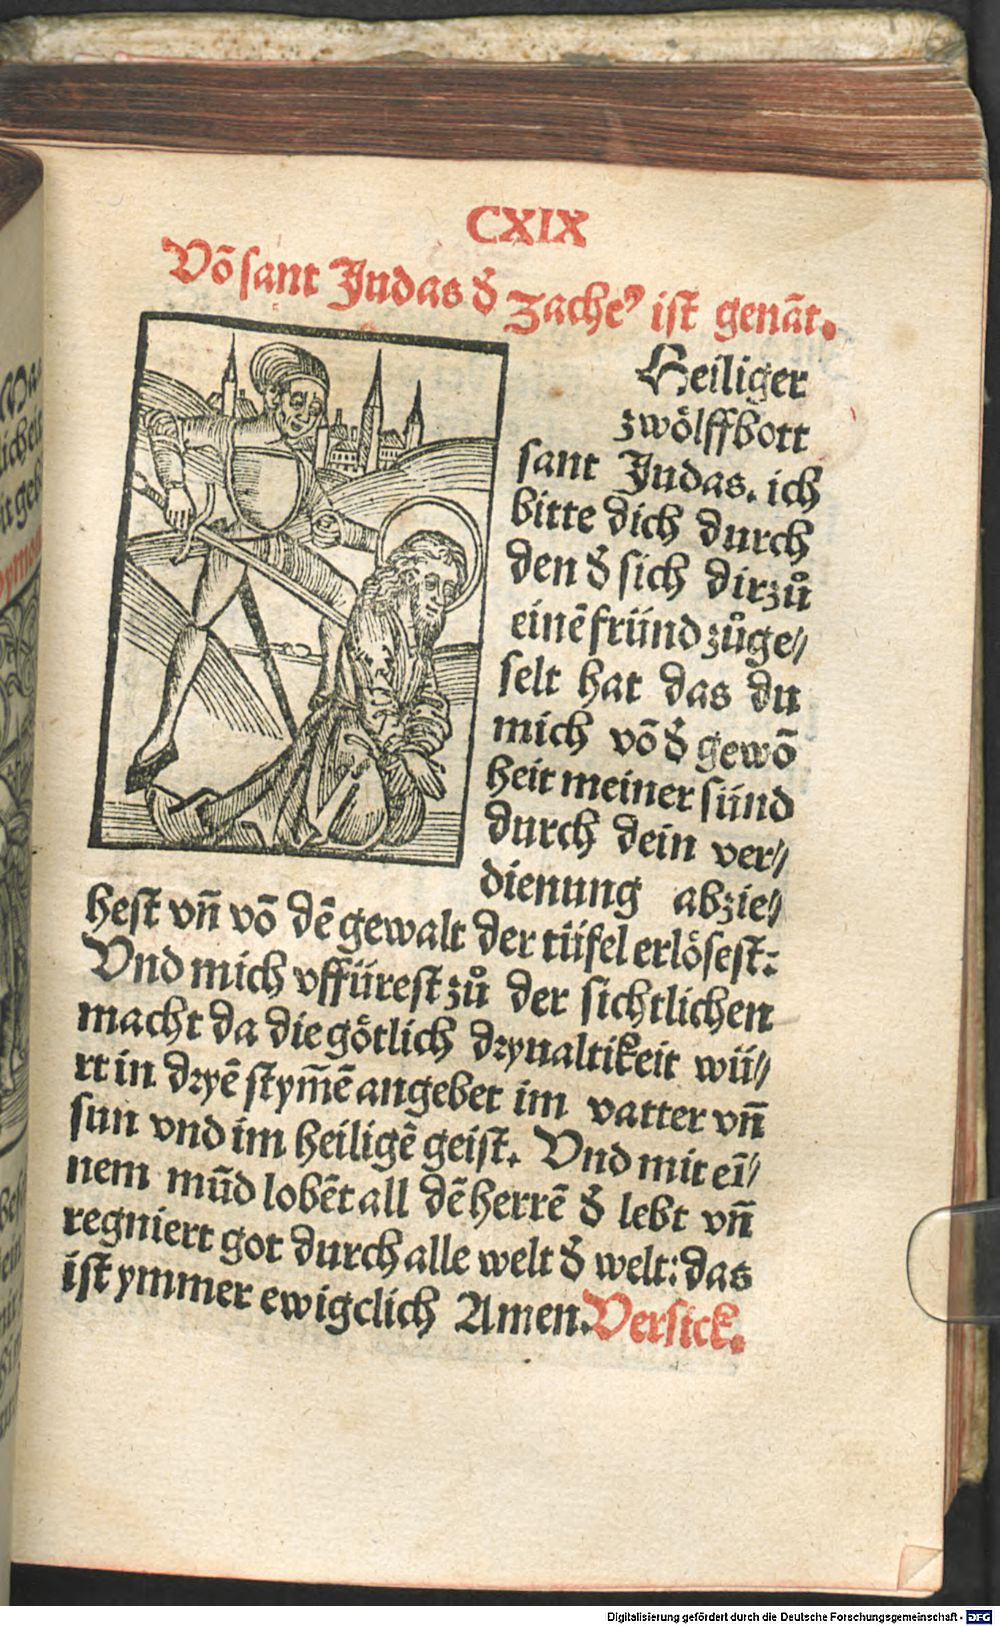 CXIX
Võ sant Judas đ Zacheꝰ ist genāt.
Heiliger
zwölffbott
sant Judas. ich
bitte dich durch
den đ sich dirzů
einē fründ zůge⸗
selt hat das du
mich võ đ gewõ
heit meiner sünd
durch dein ver⸗
dienung abzie⸗
hest vñ võ dē gewalt der tüfel erlösest:
Vnd mich vffürest zů der sichtlichen
macht da die götlich dryualtikeit wü⸗
rt in dryē stym̄ē angebet im vatter vñ
sun vnd im heiligē geist. Vnd mit eī⸗
nem mūd lobēt all dē herrē đ lebt vñ
regniert got durch alle welt đ welt: das
ist ymmer ewigclich Amen. Versick.
Digitalisierung gefördert durch die Deutsche Forschungsgemeinschaft - DFG